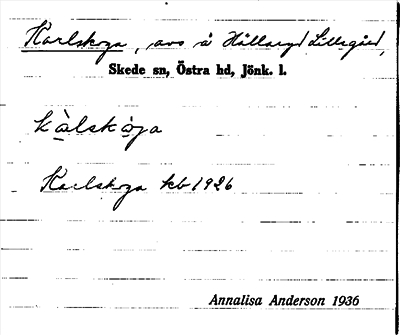 Karlskoga, avs å Hällaryd Lillegård,
Skede sn, Östra hd, Jönk. l.
kàlskòga
Karlskoga kb 1926
Annalisa Anderson 1936